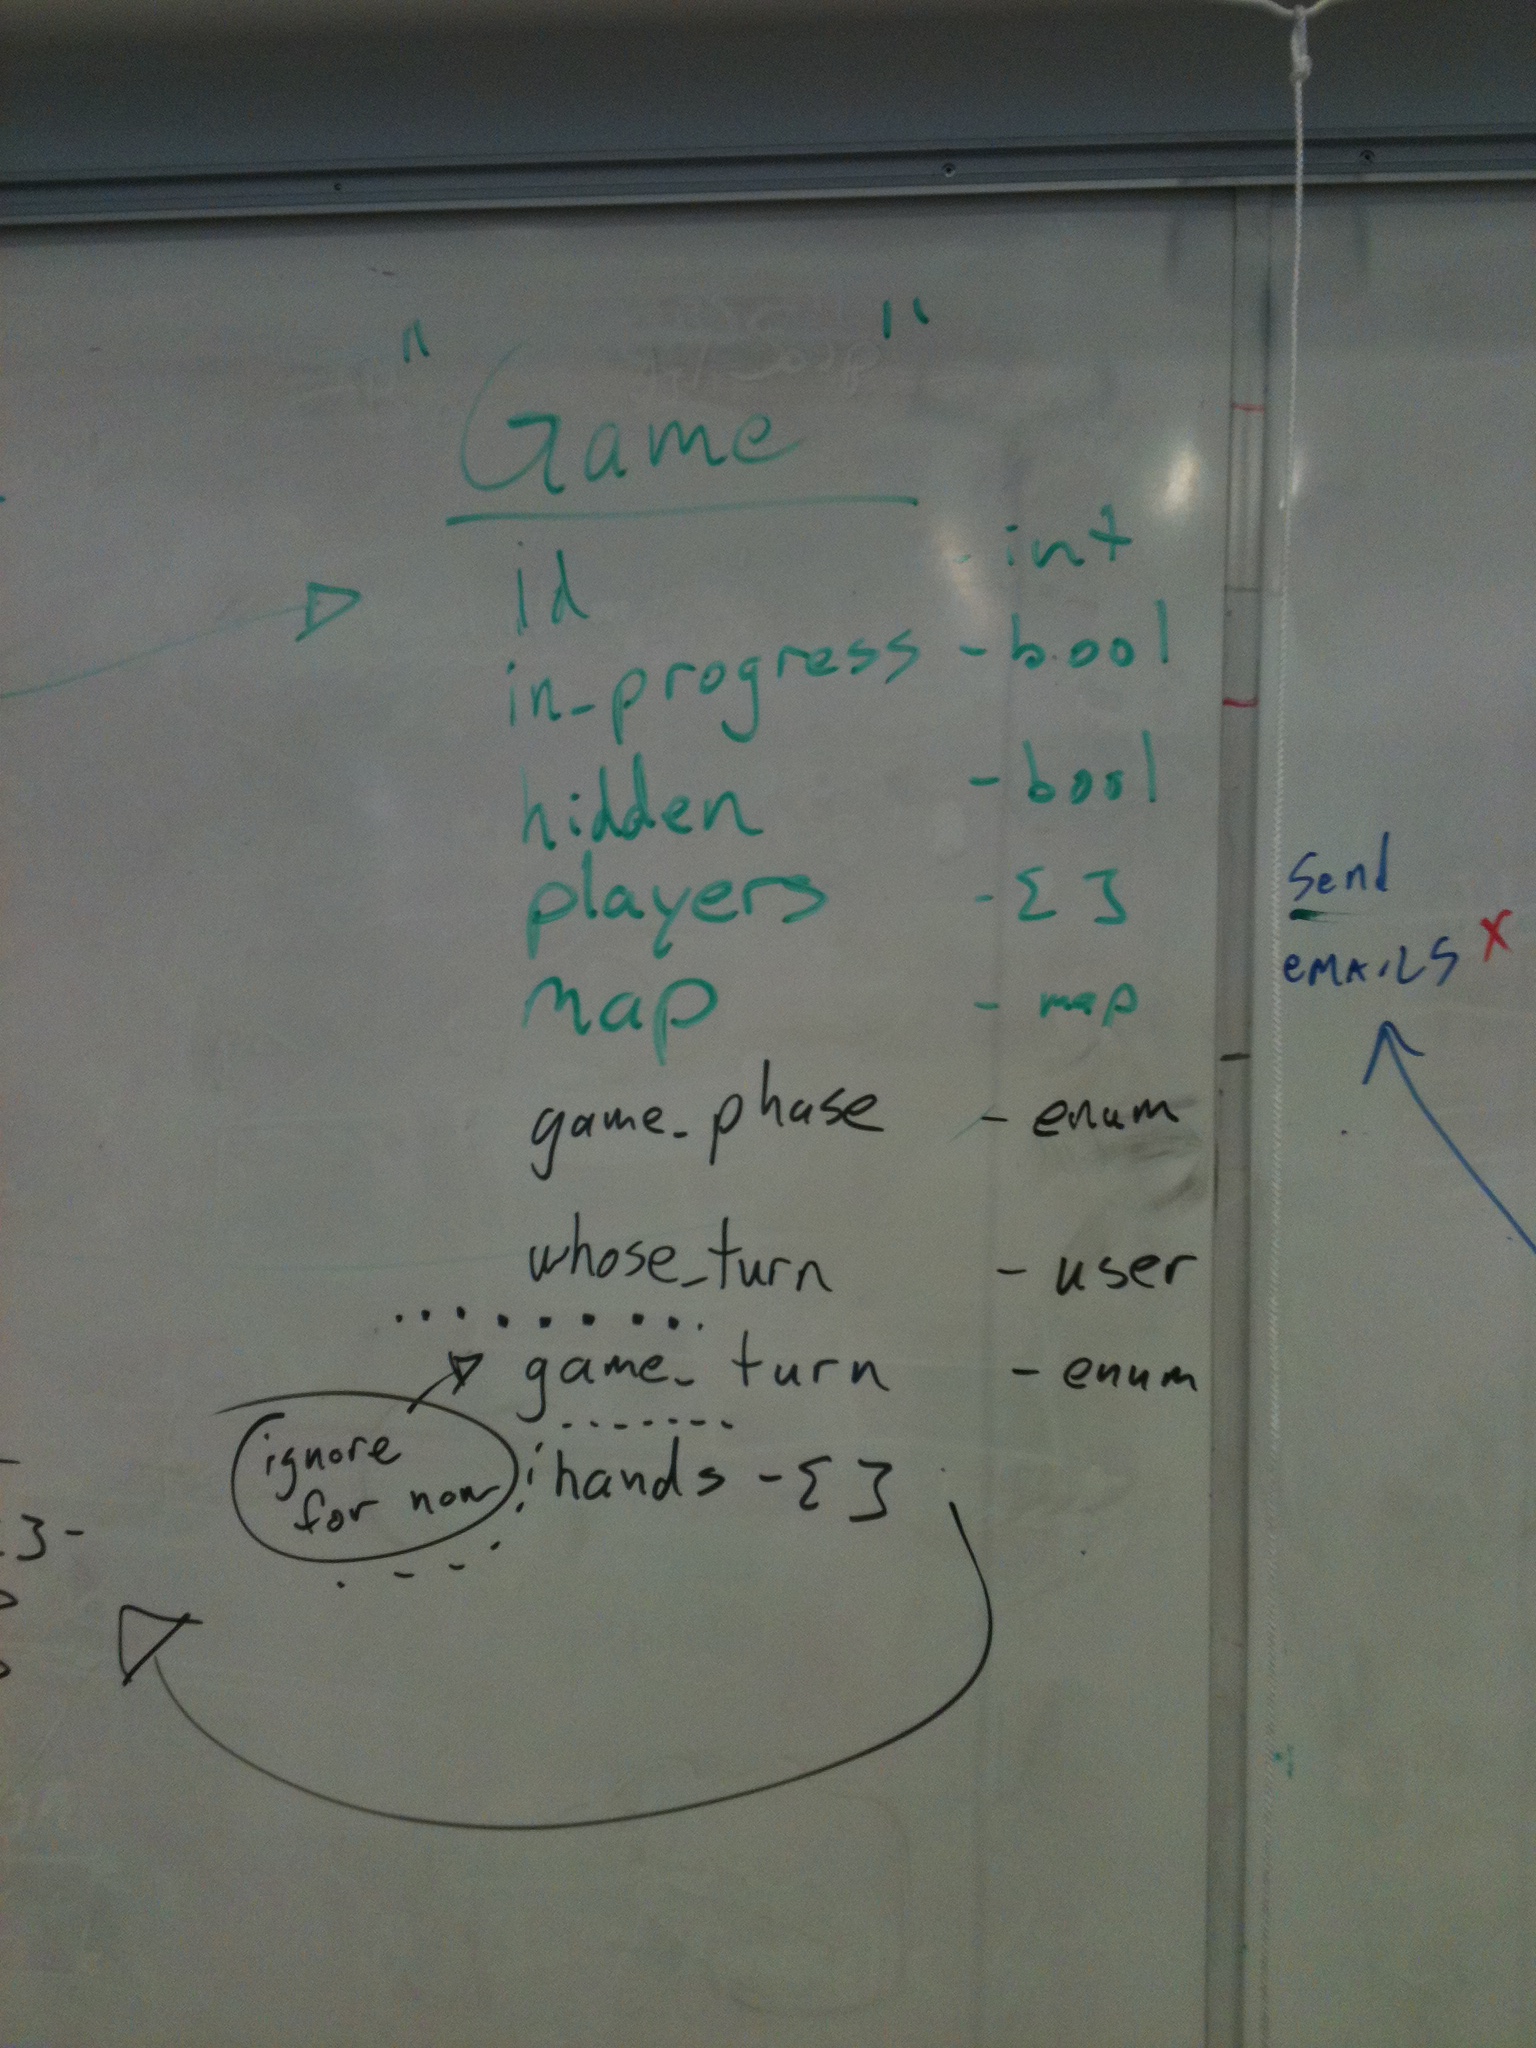 "Game"
id - int
in_progress - bool
hidden - bool
players - { }
map - map
game_phase - enum
whose_turn - user
game_turn - enum
ignore
for now
hands - { }
Send
EMAILS X
}-